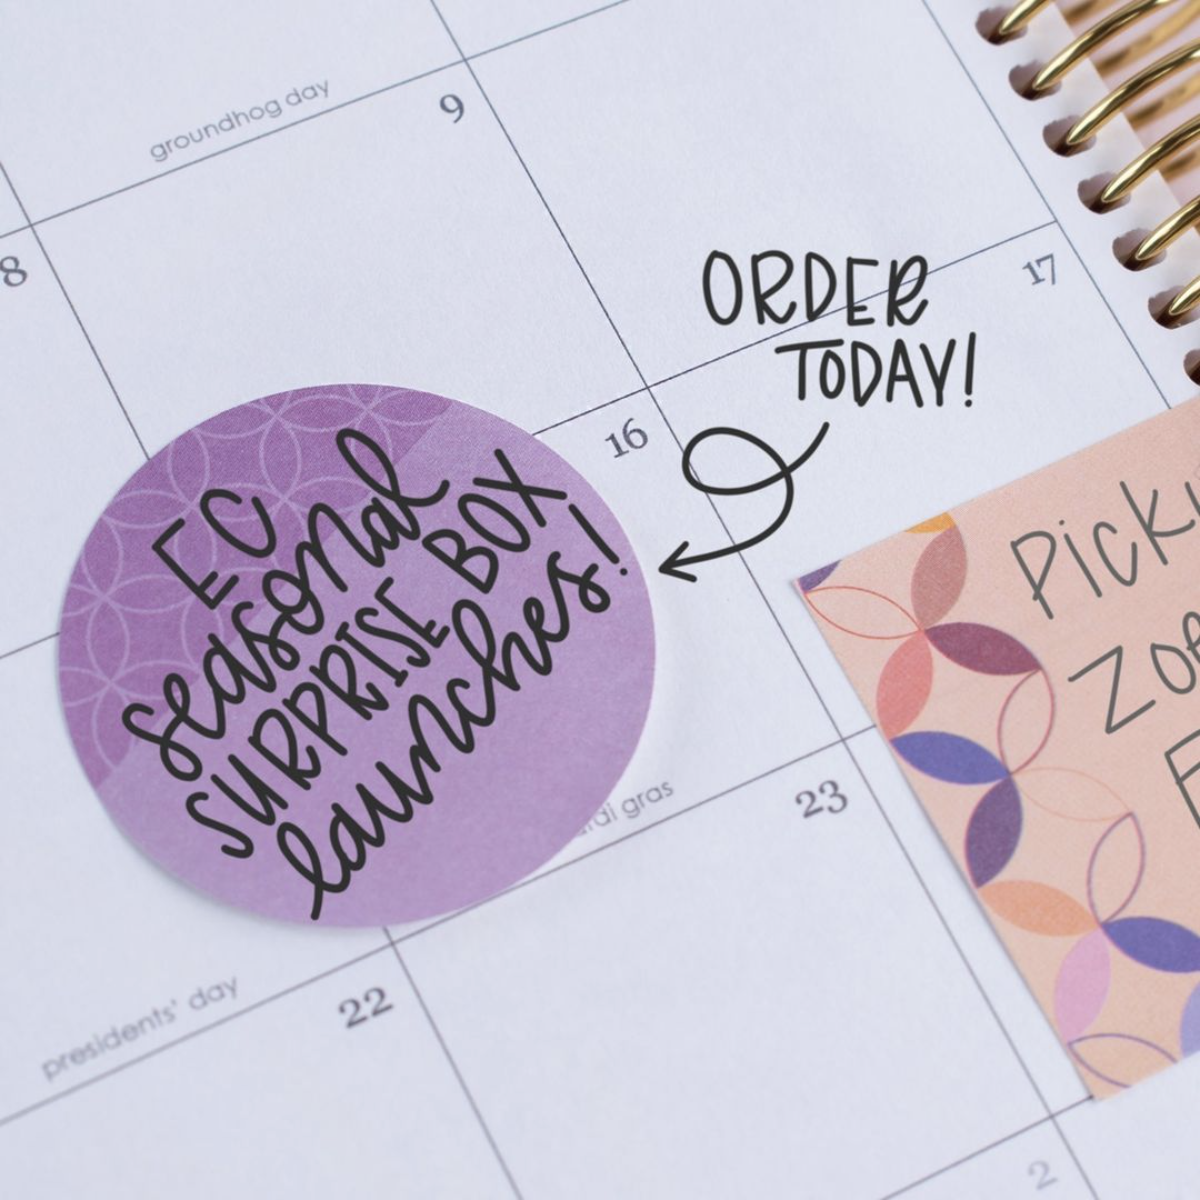 groundhog day
9
8
17
ORDER
TODAY!
16
EC
seasonal
SURPRISE BOX
launches!
Picky
gras
23
presidents' day
22
2